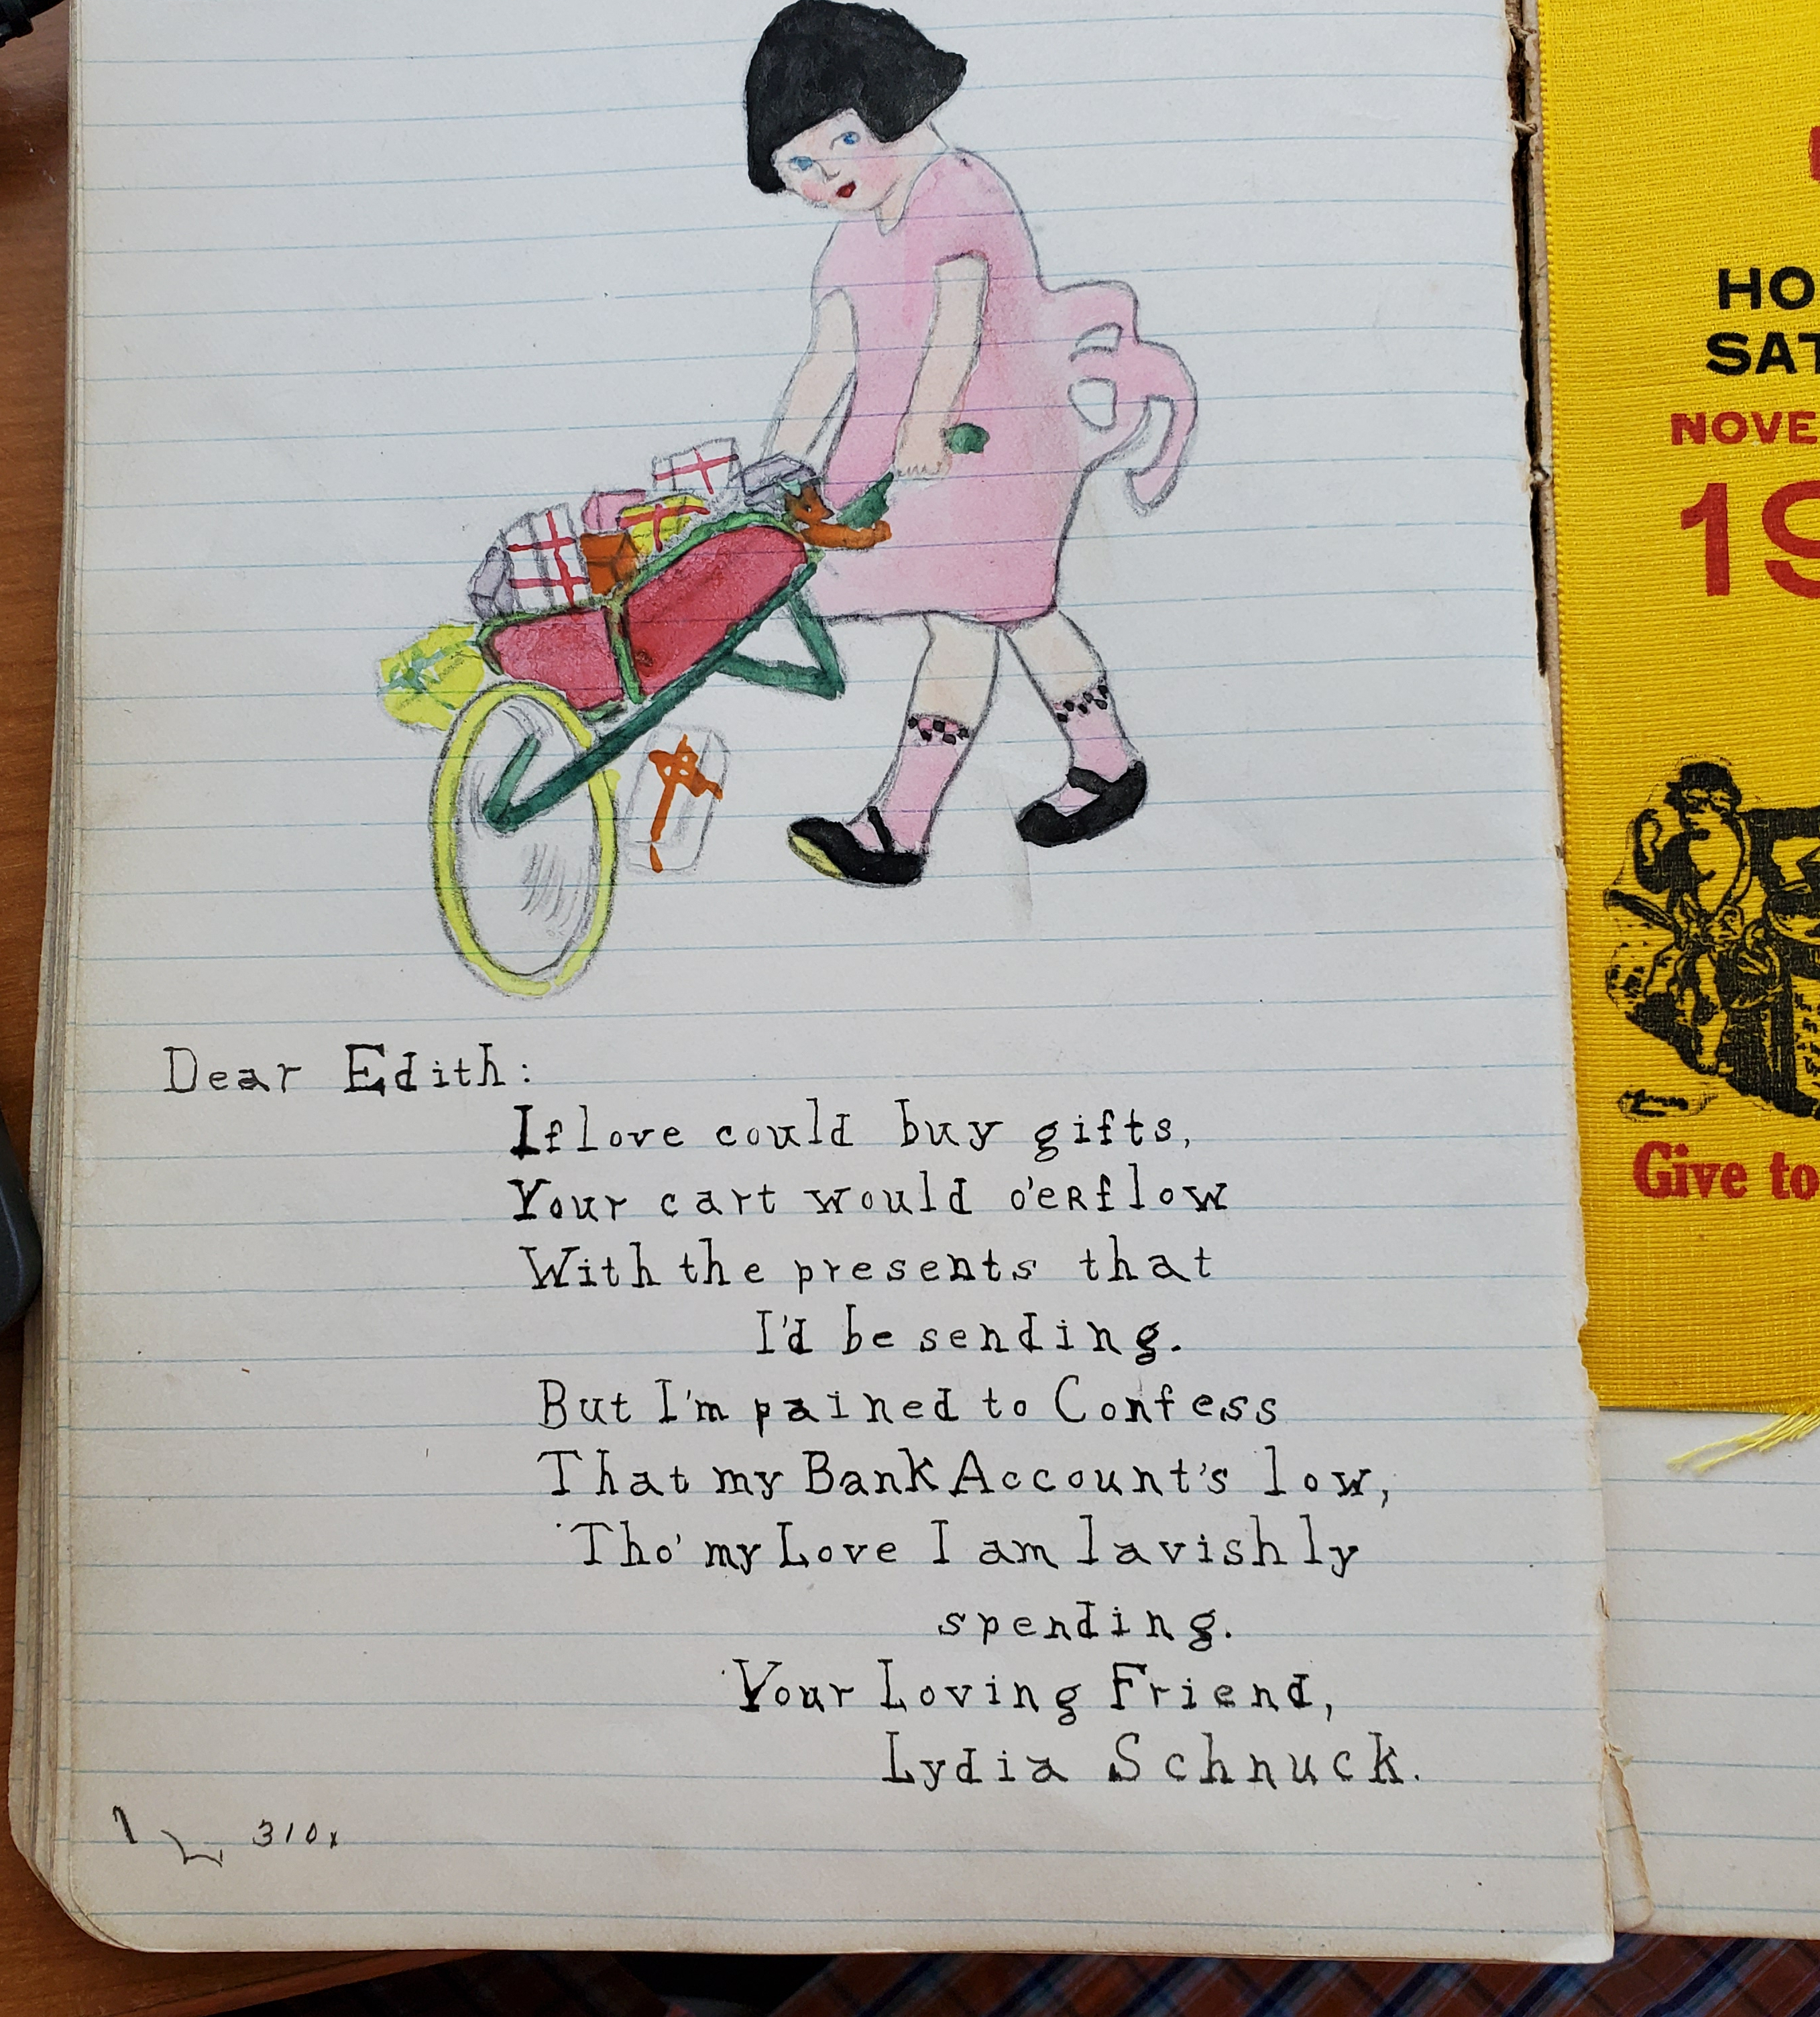 Dear Edith:
If love could buy gifts,
Your cart would o'eRflow
With the presents that
I'd be sending.
But I'm pained to Confess
That my Bank Account's low,
Tho' my Love I am lavishly
spending.
Your Loving Friend,
Lydia Schnuck.
310x
HO
SAT
NOVE
19
Give to